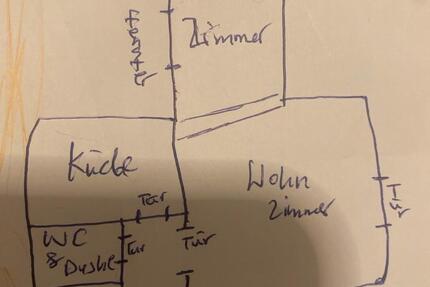 Zimmer
Küche
Wohn
zimmer
Tür
Tür
WC
& Dusche
Tur
Tür